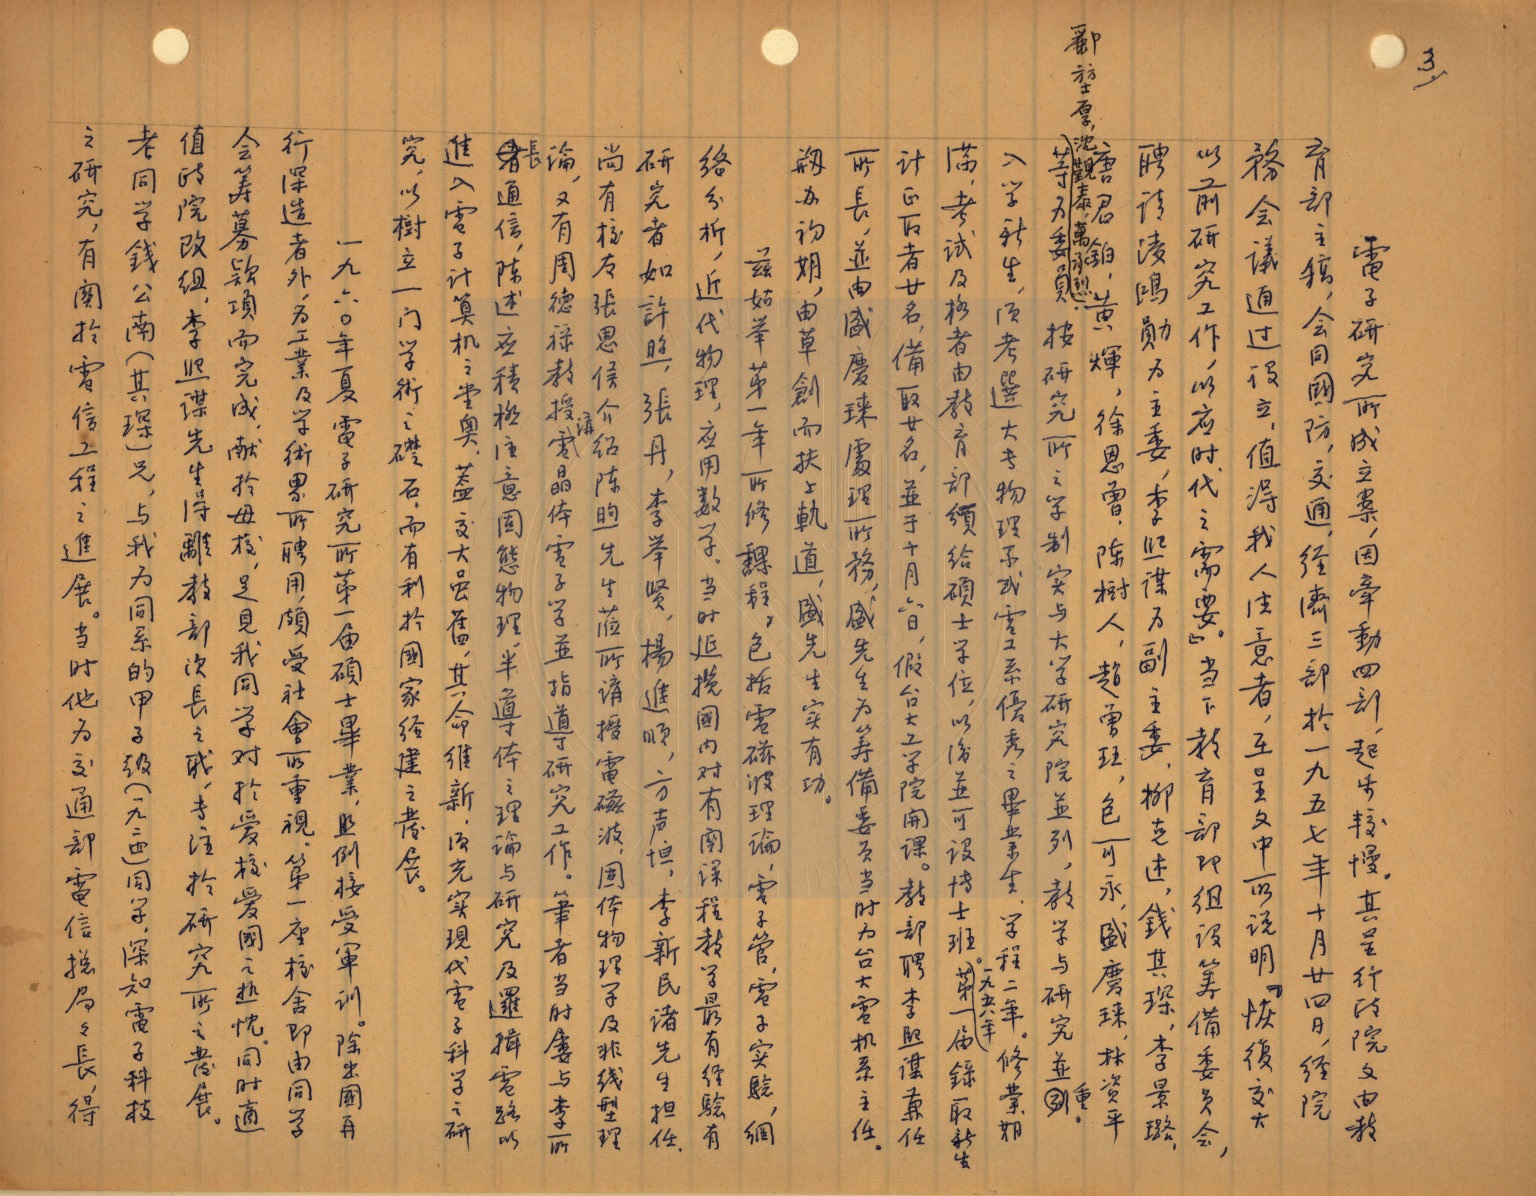 3
電子研究所成立案,因牽動四部,起步較慢。其呈行政院文由教
育部主稿,会同國防,交通,經濟三部於一九五七年十月廿四日,經院
務会議通过設立,值得我人注意者,在呈文中所説明『恢復交大
以前研究工作,以应时代之需要』。当下教育部即组設筹備委员会,
聘請凌鴻勛为主委,李熙謀为副主委,柳克述,錢其琛,李景潞,
唐君鉑,黄輝,徐恩曾,陈樹人,趙曾珏,包可永,盛慶琜,林資平
鄒堃厚,沈觀泰,萬承烈,
等为委員。按研究所之学制实与大学研究院並列,教学与研究並重。
入学新生,须考選大专物理系或電工系優秀之畢業生,学程二年。修業期
滿,考试及格者由教育部頒给碩士学位,以後並可设博士班。第一届錄取新生
一九五六年
计正取者廿名,備取廿名,並于十月六日,假台大工学院開課。教部聘李熙謀兼任
所長,並由盛慶琜處理所務,盛先生为筹備委員当时为台大電机系主任。
剏办初期,由草創而扶上軌道,盛先生实有功。
茲姑举第一年所修課程,包括電磁波理論,電子管,電子实驗,網
络分析,近代物理,应用数学。当时延攬國内对有関课程教学最有经驗有
研究者如許照,張丹,李举賢,楊進順,方声恒,李新民诸先生担任。
尚有校友張思侯介绍陈昫先生蒞所講授電磁波,固体物理学及非线型理
論,又有周德禄教授講電晶体電子学並指導研究工作。筆者当时屡与李所
長通信,陈述应積極注意固態物理,半導体之理論与研究及邏輯電路以
進入電子计算机之堂奥。蓋交大虽舊,其命维新,须充实現代電子科学之研
究,以樹立一门学術之礎石,而有利於國家经建之發展。
一九六〇年夏電子研究所第一届碩士畢業,照例接受軍训。除出國再
行深造者外,为工業及学術界所聘用,頗受社會所重視。第一座校舍即由同学
会筹募款項而完成,献於母校,足見我同学对於愛校愛國之热忱。同时適
值政院改组,李熙謀先生得離教部次長之職,专注於研究所之發展。
老同学錢公南(其琛)兄,与我为同系的甲子級(一九二四)同学,深知電子科技
之研究,有関於電信工程之進展。当时他为交通部電信总局之長,得